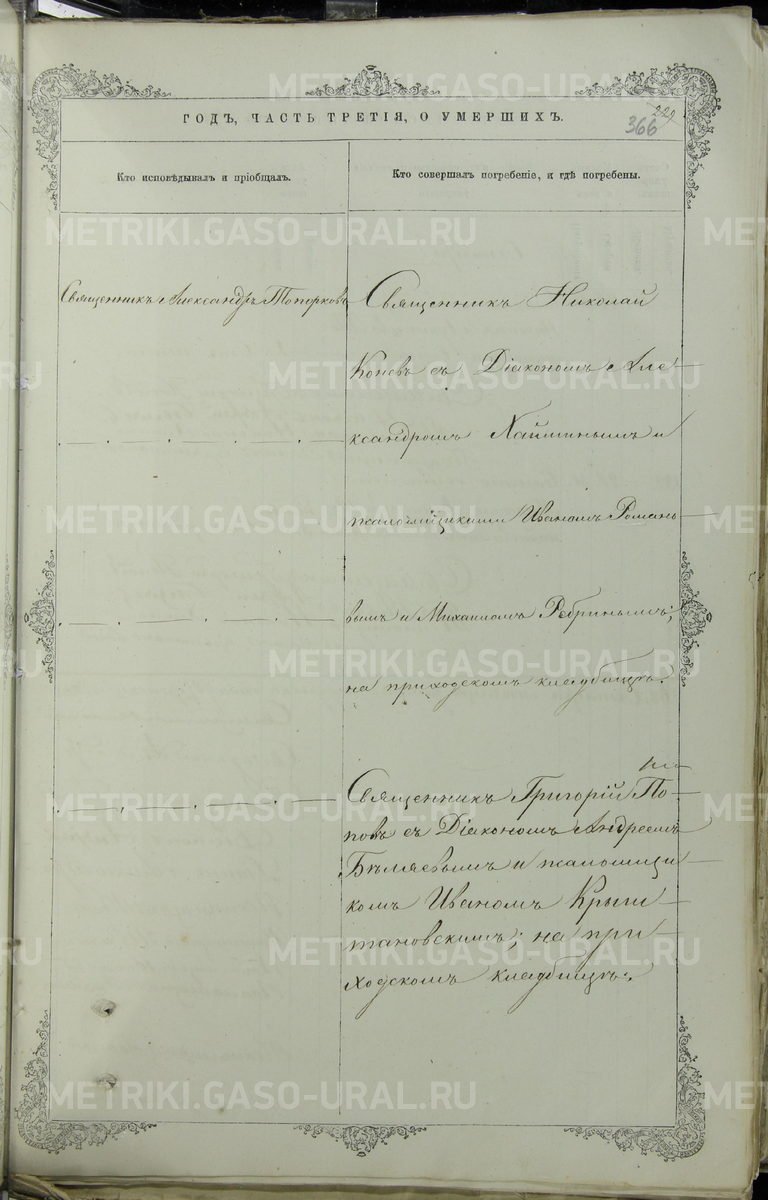 ГОДЪ, ЧАСТЬ ТРЕТІЯ, О УМЕРШИХЪ.
229
366
Кто исповѣдывалъ и пріобщалъ.
Кто совершалъ погребеніе, и гдѣ погребены.
Священникъ Александръ Топорковъ
Священникъ Николай
Коневъ съ Діакономъ Але
ксандромъ и
псаломщиками Иваномъ Романо
вымъ и Михаиломъ Ребринымъ;
на приходскомъ кладбищѣ.
Священникъ Григорій По
повъ съ Діакономъ Андреемъ
Бѣляевымъ и псаломщи
комъ Иваномъ Крыш
тановскимъ; на при
ходскомъ кладбищѣ.
METRIKI.GASO-URAL.RU